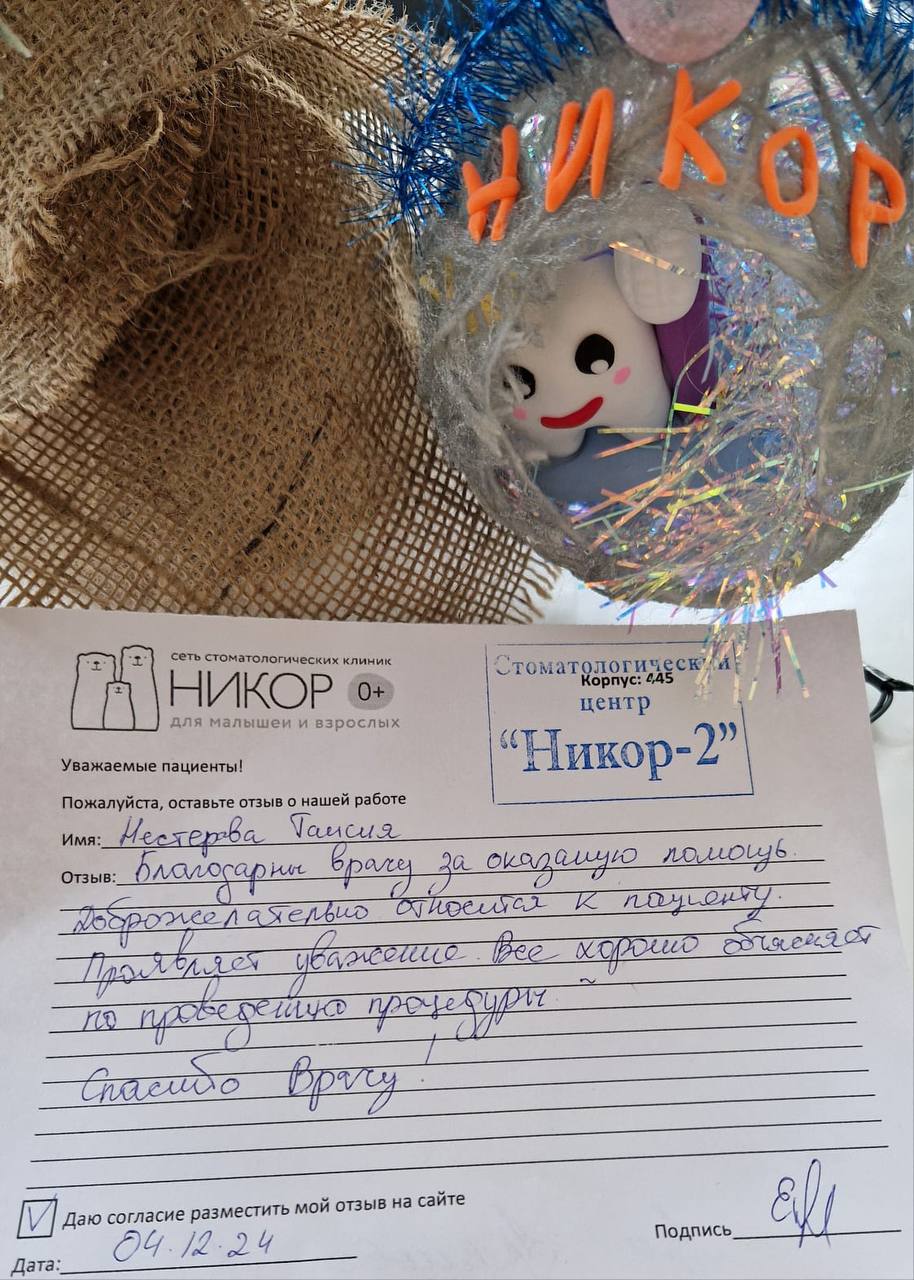 НИКОР
сеть стоматологических клиник
НИКОР 0+
для малышей и взрослых
Стоматологический
Корпус: 445
центр
“Никор-2”
Уважаемые пациенты!
Пожалуйста, оставьте отзыв о нашей работе
Имя: Нестерова Таисия
Отзыв: Благодарны врачу за оказаную помощь.
Доброжелательно относится к пациенту.
Проявляет уважение. Все хорошо объясняет
по проведению процедуры.
Спасибо Врачу!
Даю согласие разместить мой отзыв на сайте
Дата: 04.12.24
Подпись